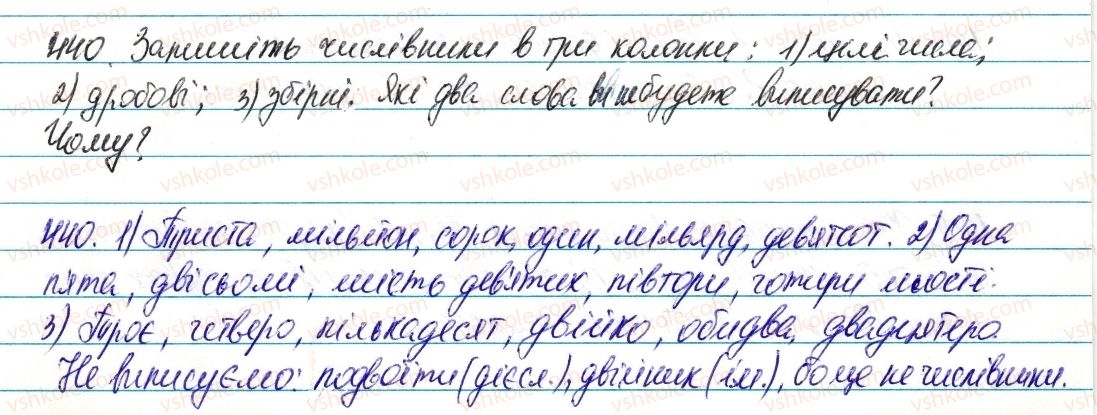 440. Запишіть числівники в три колонки: 1) цілі числа;
2) дробові; 3) збірні. Які два слова ви не будете виписувати?
Чому?
440. 1) Триста, мільйон, сорок, один, мільярд, дев'ятсот. 2) Одна
п'ята, дві сьомі, шість дев'ятих, півтори, чотири шості.
3) Троє, четверо, кількадесят, двійко, обидва, двадцятеро.
Не виписуємо: подвоїти (дієсл.), двійник (ім.), бо це не числівники.